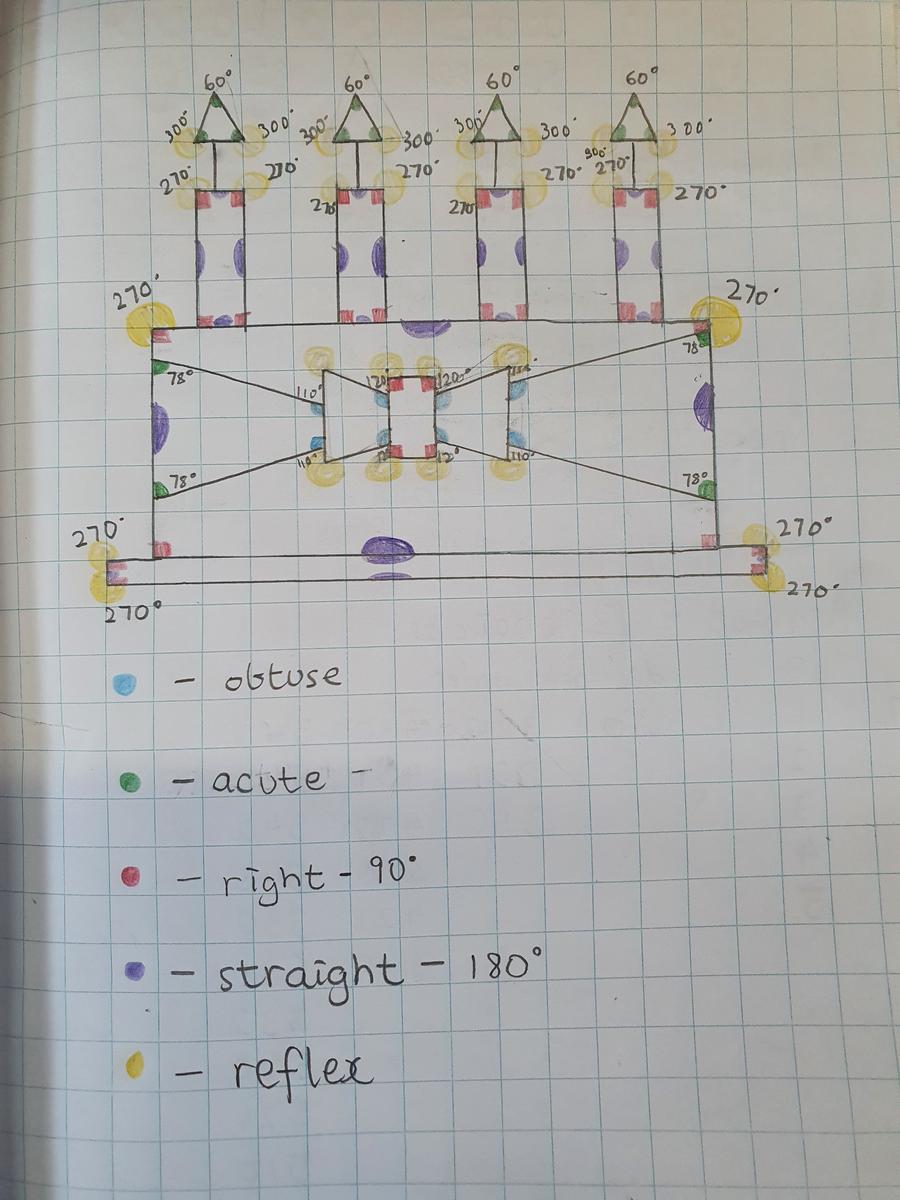 60° 60° 60° 60°
300° 300° 300° 300° 300° 300° 300°
270° 270° 270° 270° 300° 270°
270 270 270°
270° 270°
78° 78°
110° 120 120°
78° 110° 110° 78°
270° 270°
270° 270°
- obtuse
- acute -
- right - 90°
- straight - 180°
- reflex